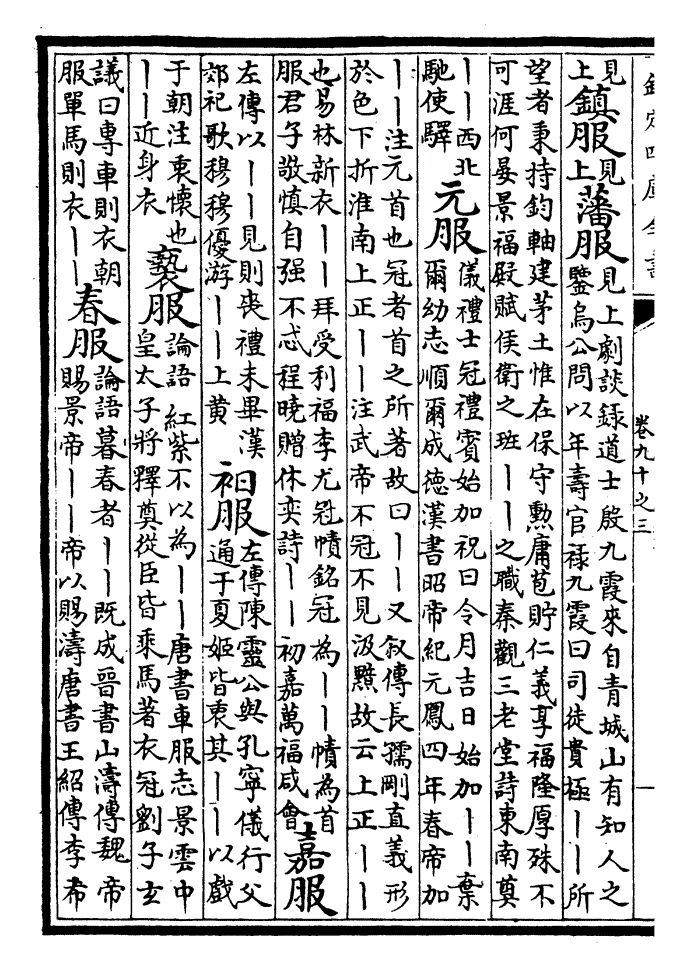 欽定四庫全書
卷九十之三
一
見
上
鎮服
見
上
藩服
見上劇談録道士殷九霞來自青城山有知人之
鑒烏公問以年壽官禄九霞曰司徒貴極丨丨所
望者秉持鈞軸建茅土惟在保守勲庸苞貯仁義享福隆厚殊不
可涯何晏景福殿賦侯衛之班丨丨之職秦觀三老堂詩東南奠
丨丨西北
馳使驛
元服
儀禮士冠禮賓始加祝曰令月吉日始加丨丨棄
爾幼志順爾成徳漢書昭帝紀元鳳四年春帝加
丨丨注元首也冠者首之所著故曰丨丨又叙傳長孺剛直義形
於色下折淮南上正丨丨注武帝不冠不見汲黯故云上正丨丨
也易林新衣丨丨拜受利福李尤冠幘銘冠為丨丨幘為首
服君子敬慎自强不忒程曉贈休奕詩丨丨初嘉萬福咸會
嘉服
左傳以丨丨見則喪禮未畢漢
郊祀歌穆穆優游丨丨上黄
衵服
左傳陳靈公與孔寧儀行父
通于夏姬皆衷其丨丨以戯
于朝注衷懷也
丨丨近身衣
褻服
論語紅紫不以為丨丨唐書車服志景雲中
皇太子將釋奠從臣皆乘馬著衣冠劉子玄
議曰專車則衣朝
服單馬則衣丨丨
春服
論語暮春者丨丨既成晉書山濤傳魏帝
賜景帝丨丨帝以賜濤唐書王紹傳李希